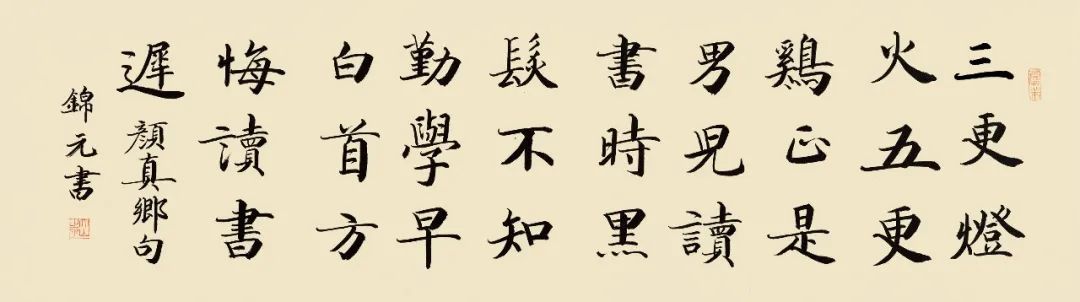 三更燈
火五更
鷄正是
男兒讀
書時黑
髮不知
勤學早
白首方
悔讀書
遲
顏真鄉句
錦元書